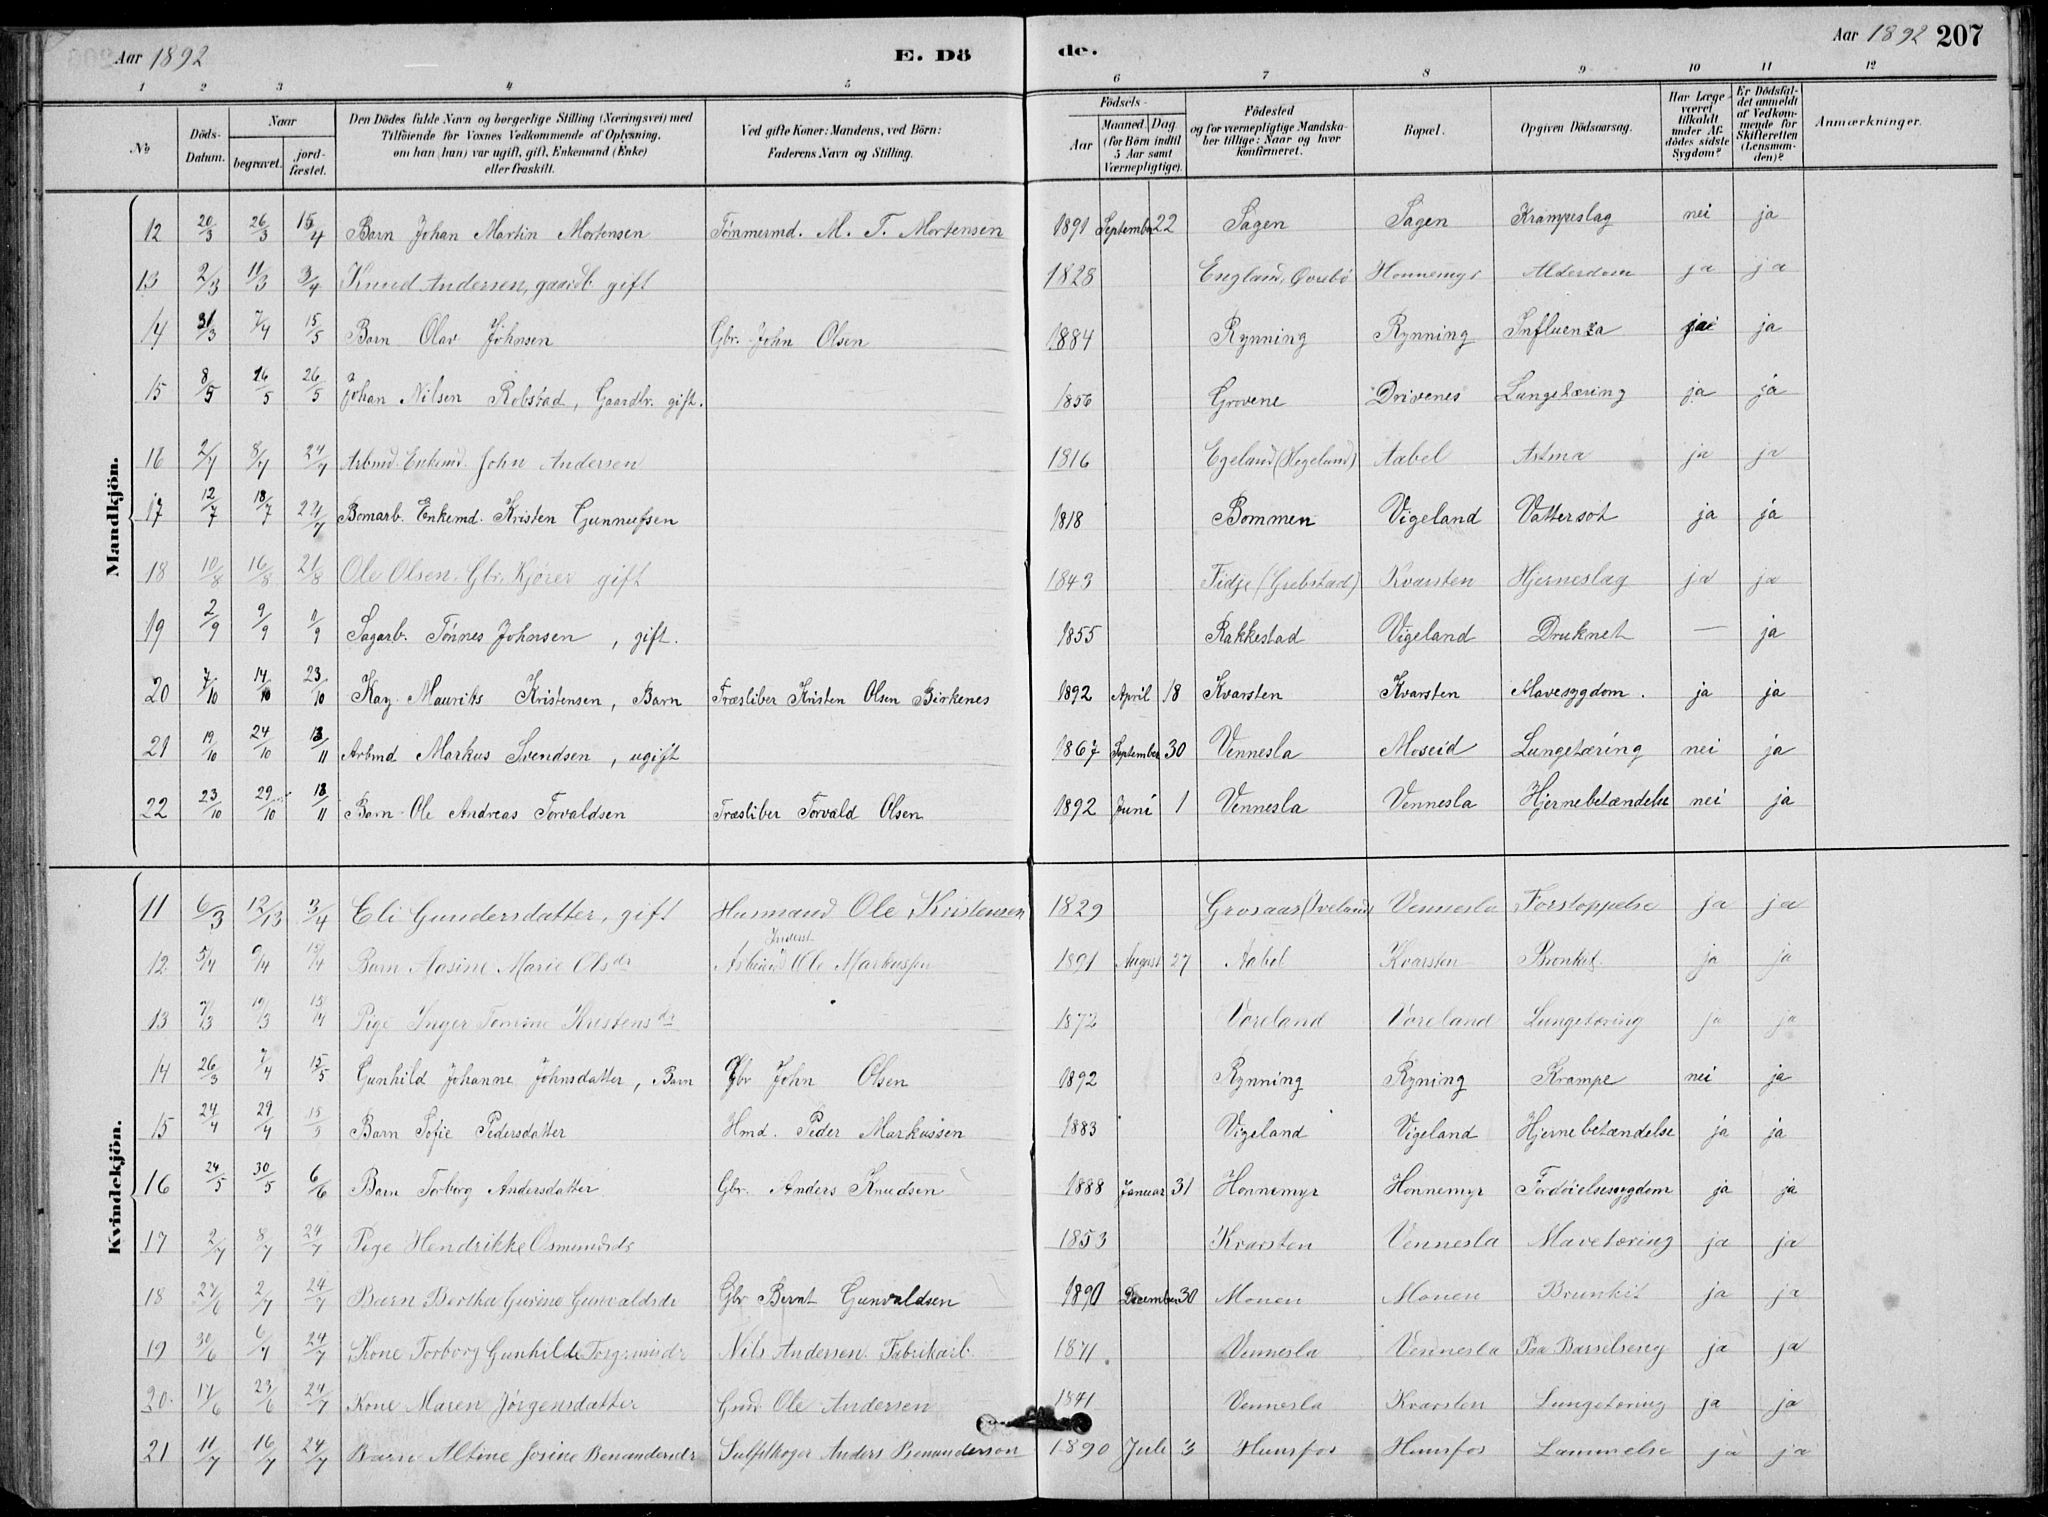 Aar 1892 E. Dö de. Aar 1892 207
1 2 3 4 5 6 7 8 9 10 11 12
No Döds-Datum. Naar begravet. jord-fæstet. Den Dödes fulde Navn og borgerlige Stilling (Næringsvei) med Tilföiende for Voxnes Vedkommende af Oplysning, om han (hun) var ugift, gift, Enkemand (Enke) eller fraskilt. Ved gifte Koner: Mandens, ved Börn: Faderens Navn og Stilling. Födsels- Aar Maaned Dag (for Børn indtil 5 Aar samt Værnepligtige). Födested og for værnepligtige Mandskaber tillige: Naar og hvor konfirmeret. Bopæl. Opgiven Dödsaarsag. Har Læge været tilkaldt under Afdödes sidste Sygdom? Er Dödsfaldet anmeldt af Vedkommende for Skifteretten (Lensmanden)? Anmærkninger.
Mandkjön.
12 20/3 26/3 15/4 Barn Johan Martin Mortensen Tømmermd. M. T. Mortensen 1891 September 22 Sagen Sagen Krampeslag nei ja
13 2/3 11/3 3/4 Knud Andersen, gaardb gift 1828 Engeland, Øvrebø Honnemyr Alderdom ja ja
14 31/3 7/4 15/5 Barn Olav Johnsen Gbr. John Olsen 1884 Rynning Rynning Influenza ja
15 8/5 16/5 26/5 Johan Nilsen Robstad, Gaardbr. gift. 1856 Grovene Drivenes Lungetæring ja ja
16 2/7 8/7 24/7 Arbmd. Enkemd. John Andersen 1816 Egeland (Hegeland) Aabel Astma ja ja
17 12/7 18/7 24/7 Bomarb. Enkemd. Kristen Gunnufsen 1818 Bommen Vigeland Vattersot ja ja
18 10/8 16/8 21/8 Ole Olsen. Gbr. Kjører gift 1843 Fidje (Grebstad) Kvarsten Hjerneslag ja ja
19 2/9 9/9 11/9 Sagarb. Tønnes Johnsen, gift. 1855 Rakkestad Vigeland Druknet — ja
20 7/10 14/10 23/10 Kay Mauriks Kristensen, Barn Træsliber Kristen Olsen Birkenes 1892 April 18 Kvarsten Kvarsten Mavesygdom. ja ja
21 19/10 24/10 13/11 Arbmd Markus Svendsen, ugift 1867 September 30 Vennesla Moseid Lungetæring nei ja
22 23/10 29/10 13/11 Barn Ole Andreas Torvaldsen Træsliber Torvald Olsen 1892 Juni 1 Vennesla Vennesla Hjernebetændelse nei ja
Kvindekjön.
11 6/3 12/3 3/4 Eli Gundersdatter, gift Husmand Ole Kristensen 1829 Grosaas (Iveland) Vennesla Forstoppelse ja ja
12 5/4 9/4 15/4 Barn Aasine Marie Olsdr Inderst Arbeidsmd Ole Markussen 1891 August 27 Aabel Kvarsten Bronkit ja ja
13 7/3 19/3 15/4 Pige Inger Tomine Kristensdr 1872 Voreland Voreland Lungetæring ja ja
14 26/3 7/4 15/5 Gunhild Johanne Johnsdatter, Barn Gbr John Olsen 1892 Rynning Ryning Krampe nei ja
15 24/4 29/4 15/5 Barn Sofie Pedersdatter Hmd. Peder Markussen 1883 Vigeland Vigeland Hjernebetændelse ja ja
16 24/5 30/5 6/6 Barn Torborg Andersdatter Gbr. Anders Knudsen 1888 Januar 31 Honnemyr Honnemyr Fordøielsessygdom ja ja
17 2/7 8/7 24/7 Pige Hendrikke Osmundsdr 1853 Kvarsten Vennesla Mavetæring ja ja
18 27/6 2/7 24/7 Barn Bertha Gurine Gunvaldsdr Gbr Bernt Gunvaldsen 1890 December 30 Monen Monen Brunkit ja ja
19 30/6 6/7 24/7 Kone Torborg Gunhilde Torgrimsdr Nils Andersen Fabrikarb. 1871 Vennesla Vennesla Paa Barselseng ja ja
20 17/6 23/6 24/7 Kone Maren Jørgensdatter Gmd Ole Andersen 1841 Vennesla Kvarsten Lungetæring ja ja
21 11/7 16/7 24/7 Barn Altine Josine Benandersdr Sulfitkoger Anders Benanderson 1890 Juli 3 Hunsfos Hunsfos Lammelse ja ja